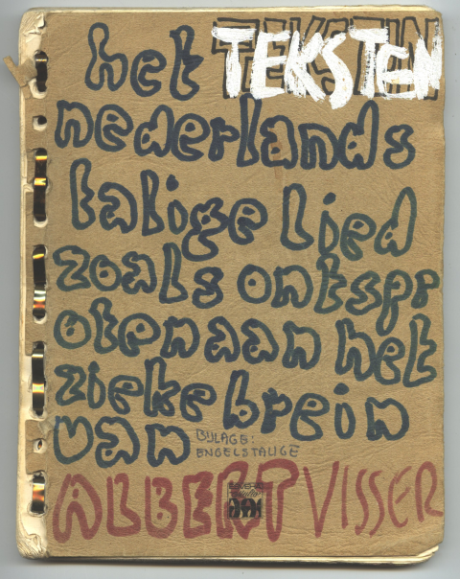 het TEKSTEN
nederlands
talige lied
zoals ontspr
oten aan het
zieke brein
van BIJLAGE:
ENGELSTALIGE
ALBERT VISSER